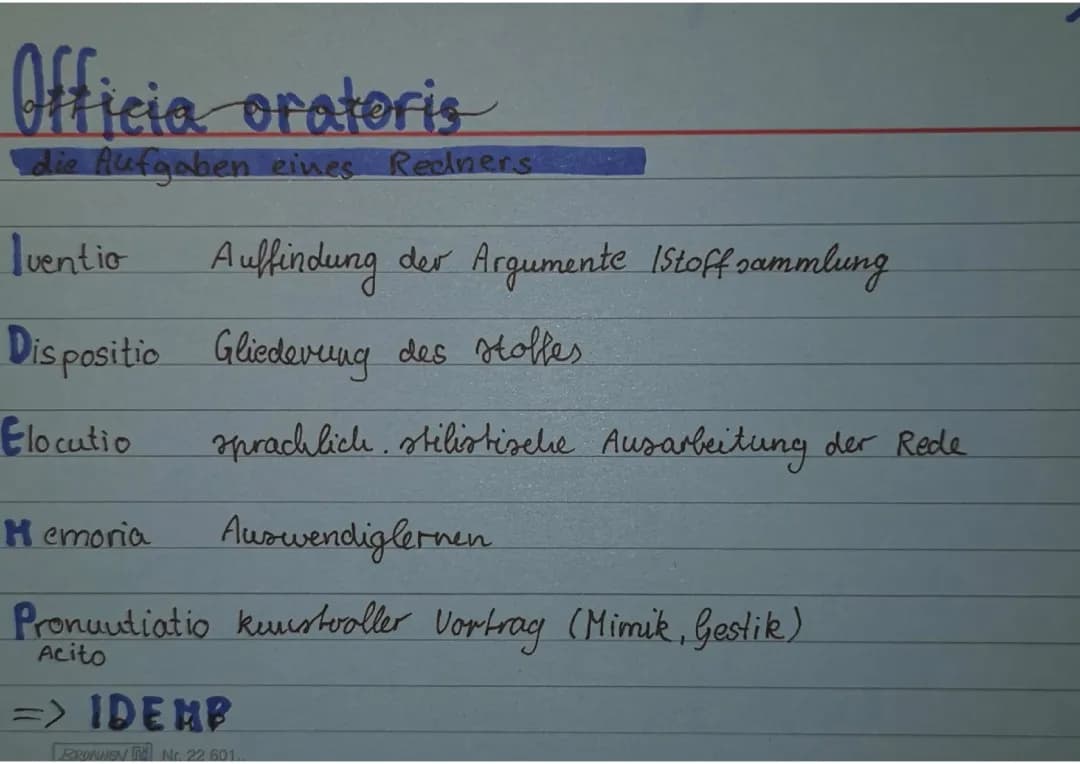 Officia oratoris
die Aufgaben eines Redners
Iventio Auffindung der Argumente /Stoffsammlung
Dispositio Gliederung des Stoffes
Elocutio sprachlich. stilistische Ausarbeitung der Rede
Memoria Auswendiglernen
Pronuntiatio kunstvoller Vortrag (Mimik, Gestik)
Acito
=> IDEMP
Nr. 22 601